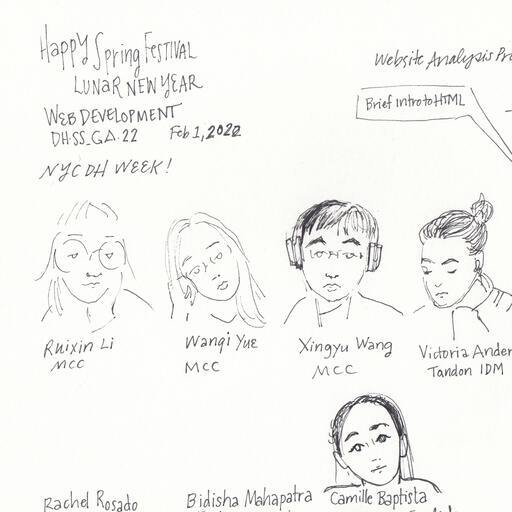 Happy Spring FESTIVAL
LUNAR NEW YEAR
WEB DEVELOPMENT
DHSS_GA.22 Feb 1, 2022
NYCDH WEEK!
Website Analysis
Brief intro to HTML
Ruixin Li
MCC
Wanqi Yue
MCC
Xingyu Wang
MCC
Victoria Ander
Tandon IDM
Rachel Rosado
Bidisha Mahapatra
Camille Baptista